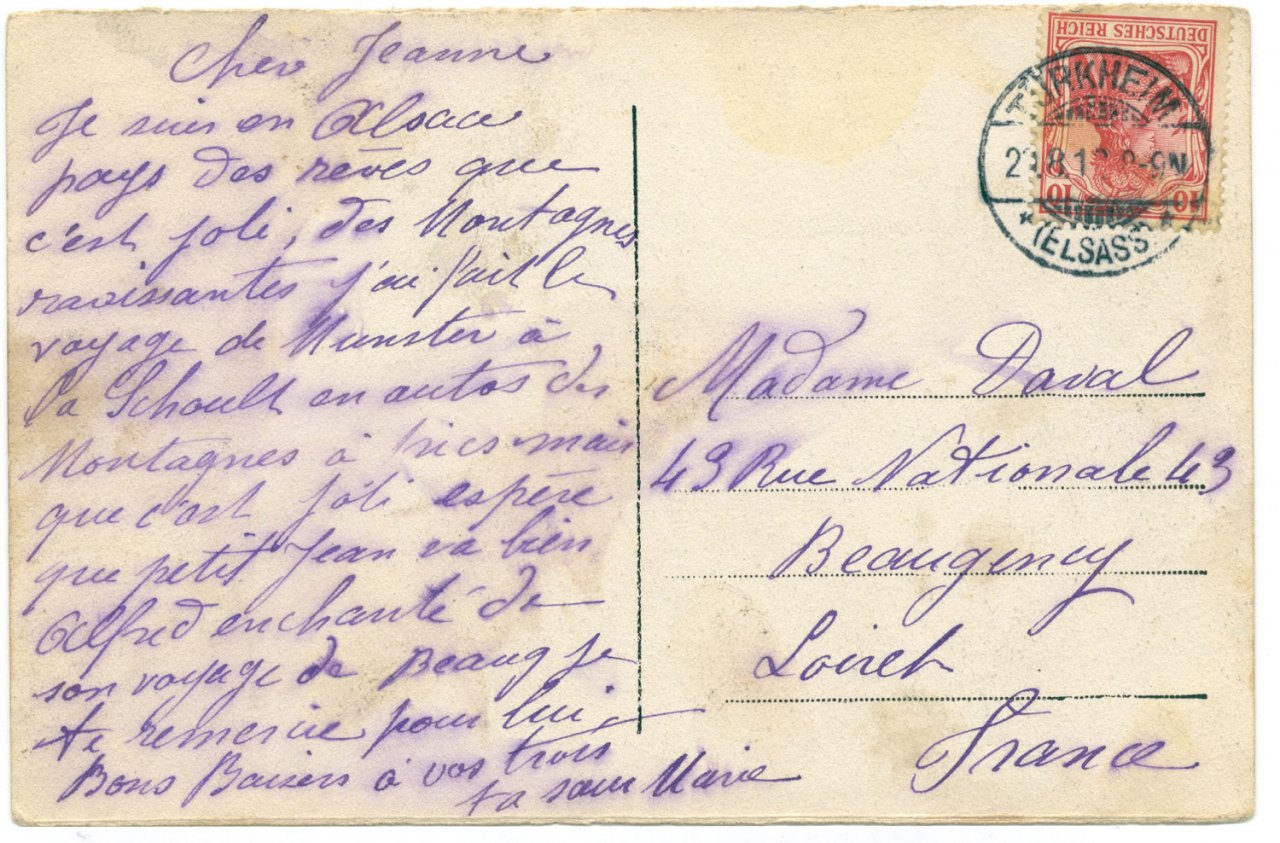 Cher Jeanne
Je suis en Alsace
pays des rêves que
c'est joli, des Montagnes
ravissantes j'ai fait le
voyage de Munster à
la Schoult en autos des
Montagnes à pics mais
que c'est joli espère
que petit Jean va bien
Alfred enchanté de
son voyage de Beaug je
te remercie pour lui
Bons Baisers à vos trois
ta sœur Marie
DEUTSCHES REICH
10 10
TÜRKHEIM
8-9N
(ELSASS)
Madame Daval
43 Rue Nationale 43
Beaugency
Loiret
France